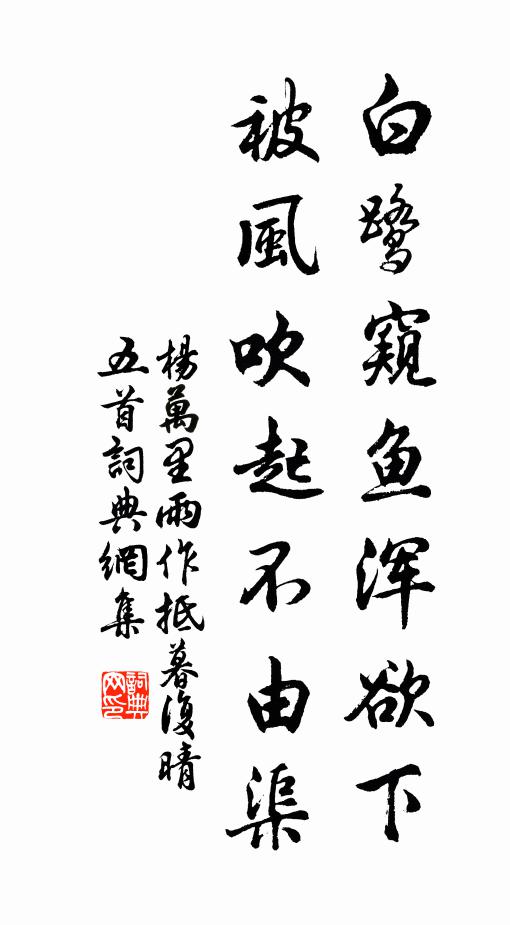 白鹭窥鱼浑欲下
被風吹起不由渠
楊萬里雨作抵暮復晴
五首詞典網集
詞典網印